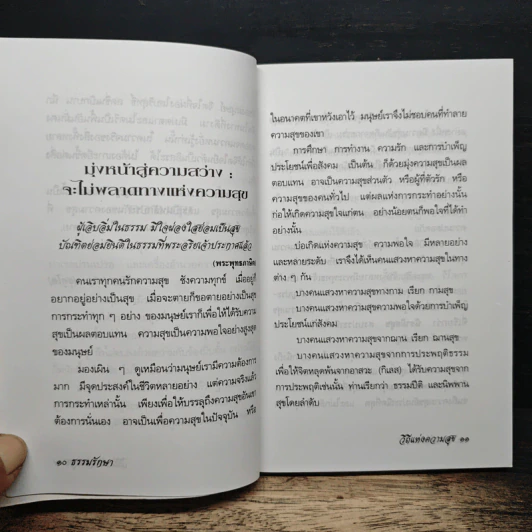 มุ่งหน้าสู่ความสว่าง :
จะไม่พลาดทางแห่งความสุข
ผู้เอิบอิ่มในธรรม มีใจผ่องใสย่อมเป็นสุข
บัณฑิตย่อมยินดีในธรรมที่พระอริยเจ้าประกาศแล้ว
(พระพุทธภาษิต)
คนเราทุกคนรักความสุข ชังความทุกข์ เมื่ออยู่ก็
อยากอยู่อย่างเป็นสุข เมื่อจะตายก็ขอตายอย่างเป็นสุข
การกระทำทุก ๆ อย่าง ของมนุษย์เราก็เพื่อให้ได้รับความ
สุขเป็นผลตอบแทน ความสุขเป็นความพอใจอย่างสูงสุด
ของมนุษย์
มองเผิน ๆ ดูเหมือนว่ามนุษย์เรามีความต้องการ
มาก มีจุดประสงค์ในชีวิตหลายอย่าง แต่ความจริงแล้ว
การกระทำเหล่านั้น เพียงเพื่อให้บรรลุถึงความสุขอันเขา
ต้องการนั่นเอง อาจเป็นเพื่อความสุขในปัจจุบัน หรือ
๑๐ ธรรมรักษา
ในอนาคตที่เขาหวังเอาไว้ มนุษย์เราจึงไม่ชอบคนที่ทำลาย
ความสุขของเขา
การศึกษา การทำงาน ความรัก และการบำเพ็ญ
ประโยชน์เพื่อสังคม เป็นต้น ก็ด้วยมุ่งความสุขเป็นผล
ตอบแทน อาจเป็นความสุขส่วนตัว หรือผู้ที่ตัวรัก หรือ
ความสุขของคนทั่วไป แต่ผลแห่งการกระทำอย่างนั้น
ก่อให้เกิดความสุขใจแก่ตน อย่างน้อยตนก็พอใจที่ได้ทำ
อย่างนั้น
บ่อเกิดแห่งความสุข ความพอใจ มีหลายอย่าง
และหลายระดับ เราจึงได้เห็นคนแสวงหาความสุขในทาง
ต่าง ๆ กัน
บางคนแสวงหาความสุขทางกาม เรียก กามสุข
บางคนแสวงหาความสุขความพอใจด้วยการบำเพ็ญ
ประโยชน์แก่สังคม
บางคนแสวงหาความสุขจากฌาน เรียก ฌานสุข
บางคนแสวงหาความสุขจากการประพฤติธรรม
เพื่อให้จิตหลุดพ้นจากอาสวะ (กิเลส) ได้รับความสุขจาก
การประพฤติเช่นนั้น ท่านเรียกว่า ธรรมปีติ และนิพพาน
สุขโดยลำดับ
วิถีแห่งความสุข ๑๑